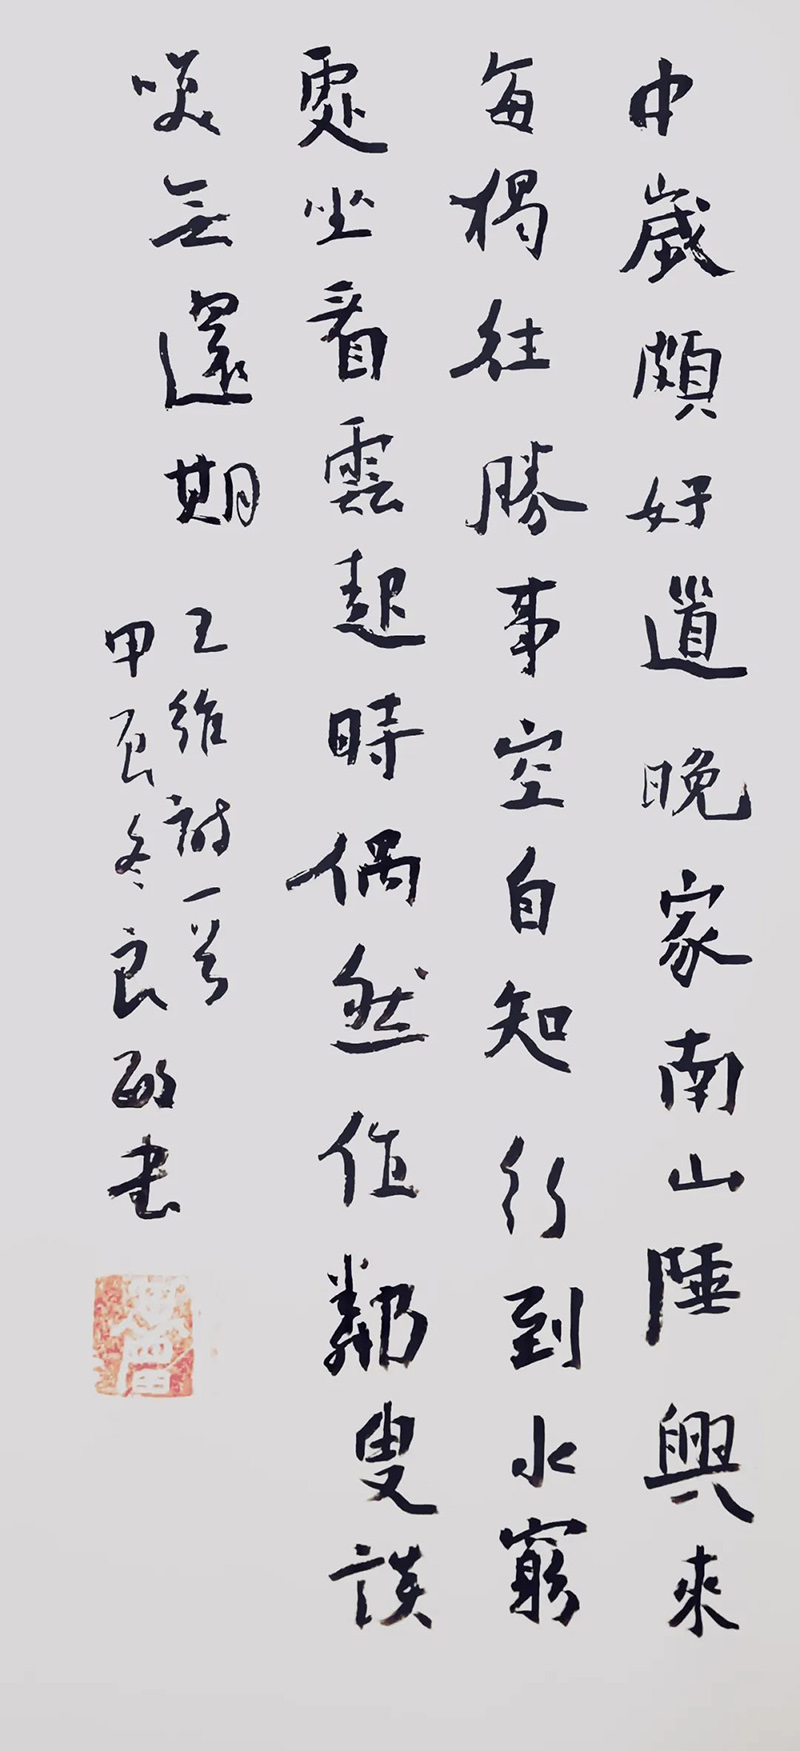 中歲頗好道晚家南山陲興來
每獨往勝事空自知行到水窮
處坐看雲起時偶然值鄰叟談
咲無還期
王維詩一首
甲辰冬良書